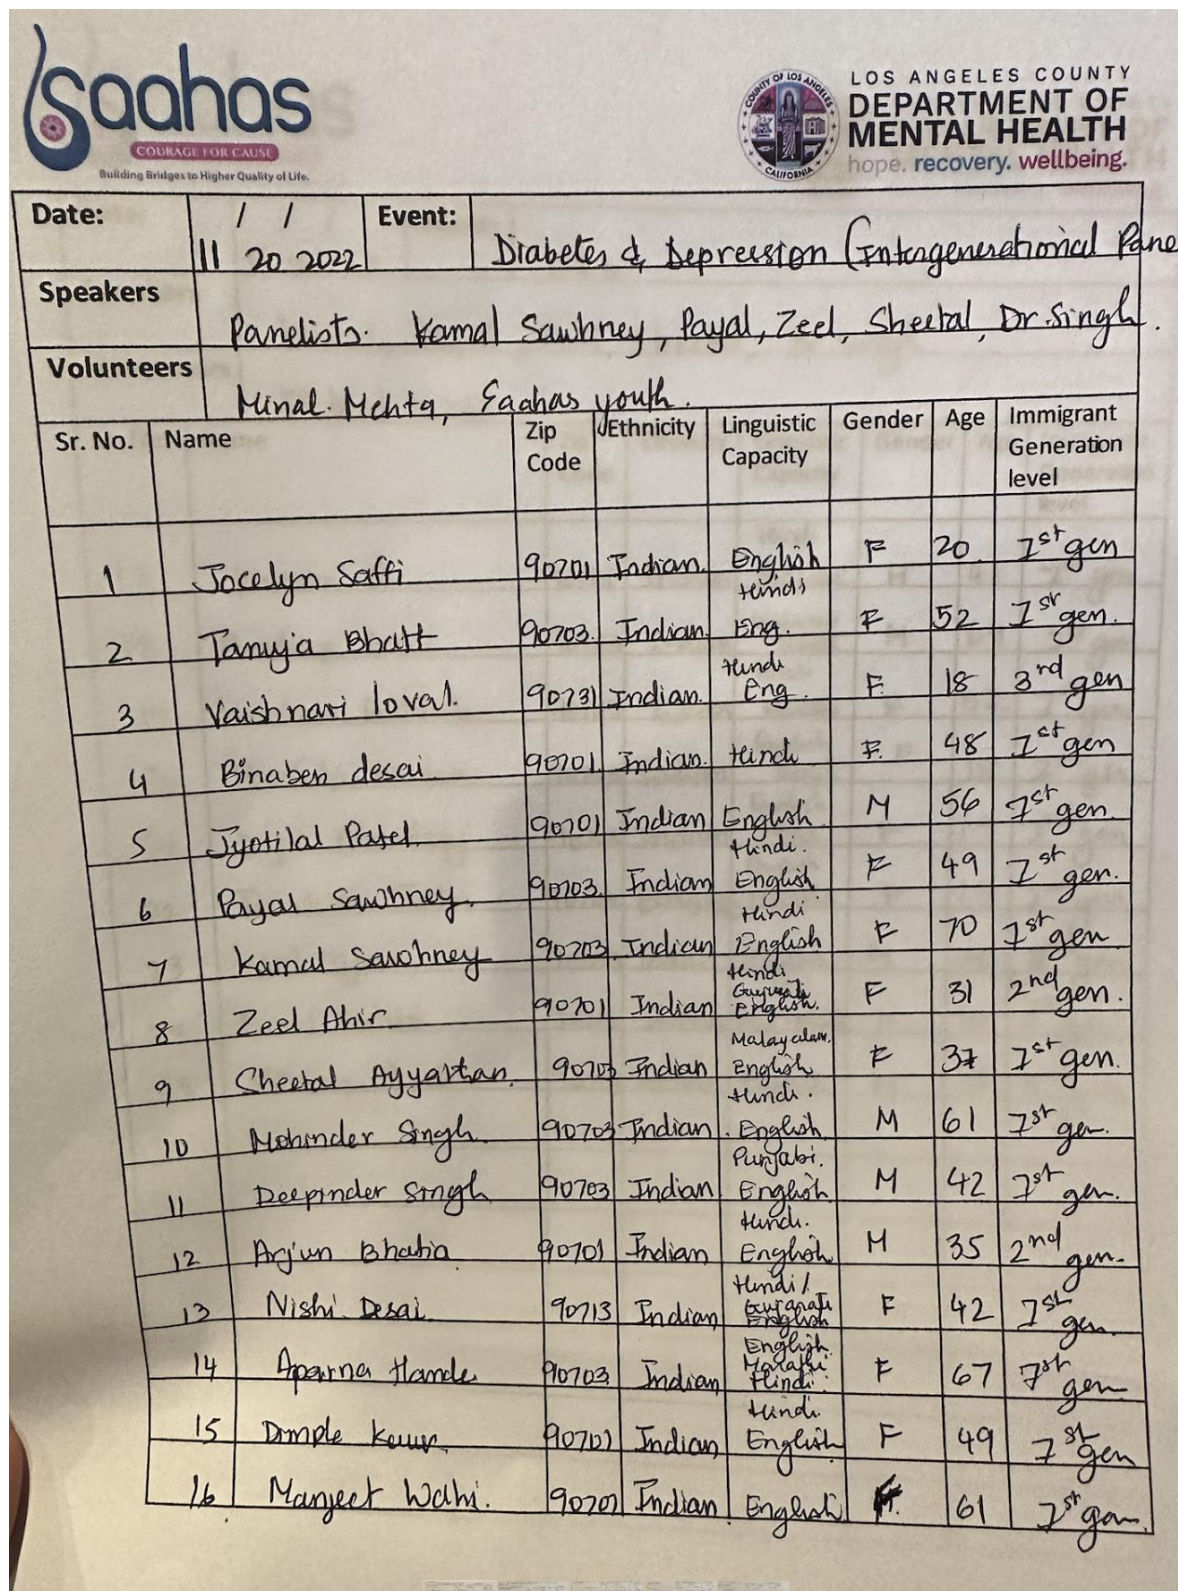 Saahas
COURAGE FOR CAUSE
Building Bridges to Higher Quality of Life.
COUNTY OF LOS ANGELES
CALIFORNIA
LOS ANGELES COUNTY
DEPARTMENT OF
MENTAL HEALTH
hope. recovery. wellbeing.
Date: 11/20/2022 Event: Diabetes & Depression (Intergenerational Pane
Speakers Panelists. Kamal Sawhney, Payal, Zeel, Sheetal, Dr. Singh.
Volunteers Minal. Mehta, Saahas youth.
Sr. No. Name Zip Code Ethnicity Linguistic Capacity Gender Age Immigrant Generation level
1 Jocelyn Saffi 90701 Indian. English F 20 1st gen
2 Tanuja Bhatt 90703. Indian Hindi Eng. F 52 1st gen.
3 Vaishnavi loval. 90731 Indian. Hindi Eng. F. 18 3rd gen
4 Binaben desai 90701 Indian. Hindi F. 48 1st gen
5 Jyotilal Patel. 90701 Indian English M 56 1st gen.
6 Payal Sawhney. 90703. Indian Hindi. English F 49 1st gen.
7 Kamal Sawhney 90703. Indian Hindi English F 70 1st gen
8 Zeel Ahir. 90701 Indian Hindi Gujurati English. F 31 2nd gen.
9 Sheetal Ayyartan. 90703 Indian Malayalam. English F 37 1st gen.
10 Mohinder Singh. 90703 Indian Hindi. English. M 61 1st gen.
11 Deepinder Singh 90703 Indian Punjabi. English. M 42 1st gen.
12 Arjun Bhatia 90701 Indian Hindi. English M 35 2nd gen.
13 Nishi Desai. 90713 Indian Hindi/ Gujarati English F 42 1st gen.
14 Aparna Hande 90703 Indian English Marathi Hindi. F 67 1st gen
15 Dimple Kaur. 90701 Indian Hindi. English F 49 1st gen
16 Manjeet Wahi. 90701 Indian English 61 1st gen.